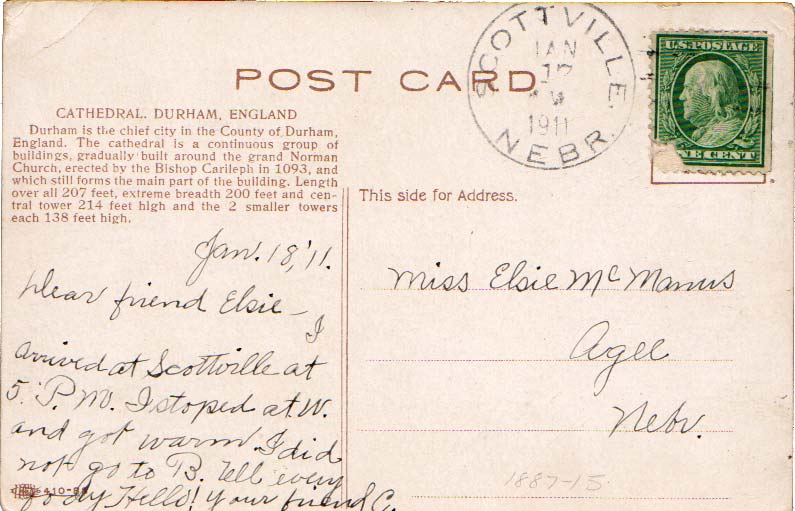 SCOTTVILLE,
JAN
17
1911
NEBR.
U.S. POSTAGE
NE CENT
POST CARD
CATHEDRAL. DURHAM, ENGLAND
Durham is the chief city in the County of Durham,
England. The cathedral is a continuous group of
buildings, gradually built around the grand Norman
Church, erected by the Bishop Carileph in 1093, and
which still forms the main part of the building. Length
over all 207 feet, extreme breadth 200 feet and cen-
tral tower 214 feet high and the 2 smaller towers
each 138 feet high.
This side for Address.
Jan. 18, '11.
Dear friend Elsie—
I
arrived at Scottville at
5 P.M. I stoped at W.
and got warm. I did
not go to B. Tell every
body Hello! Your friend C.
Miss Elsie McManus
Agee
Nebr.
1887-15